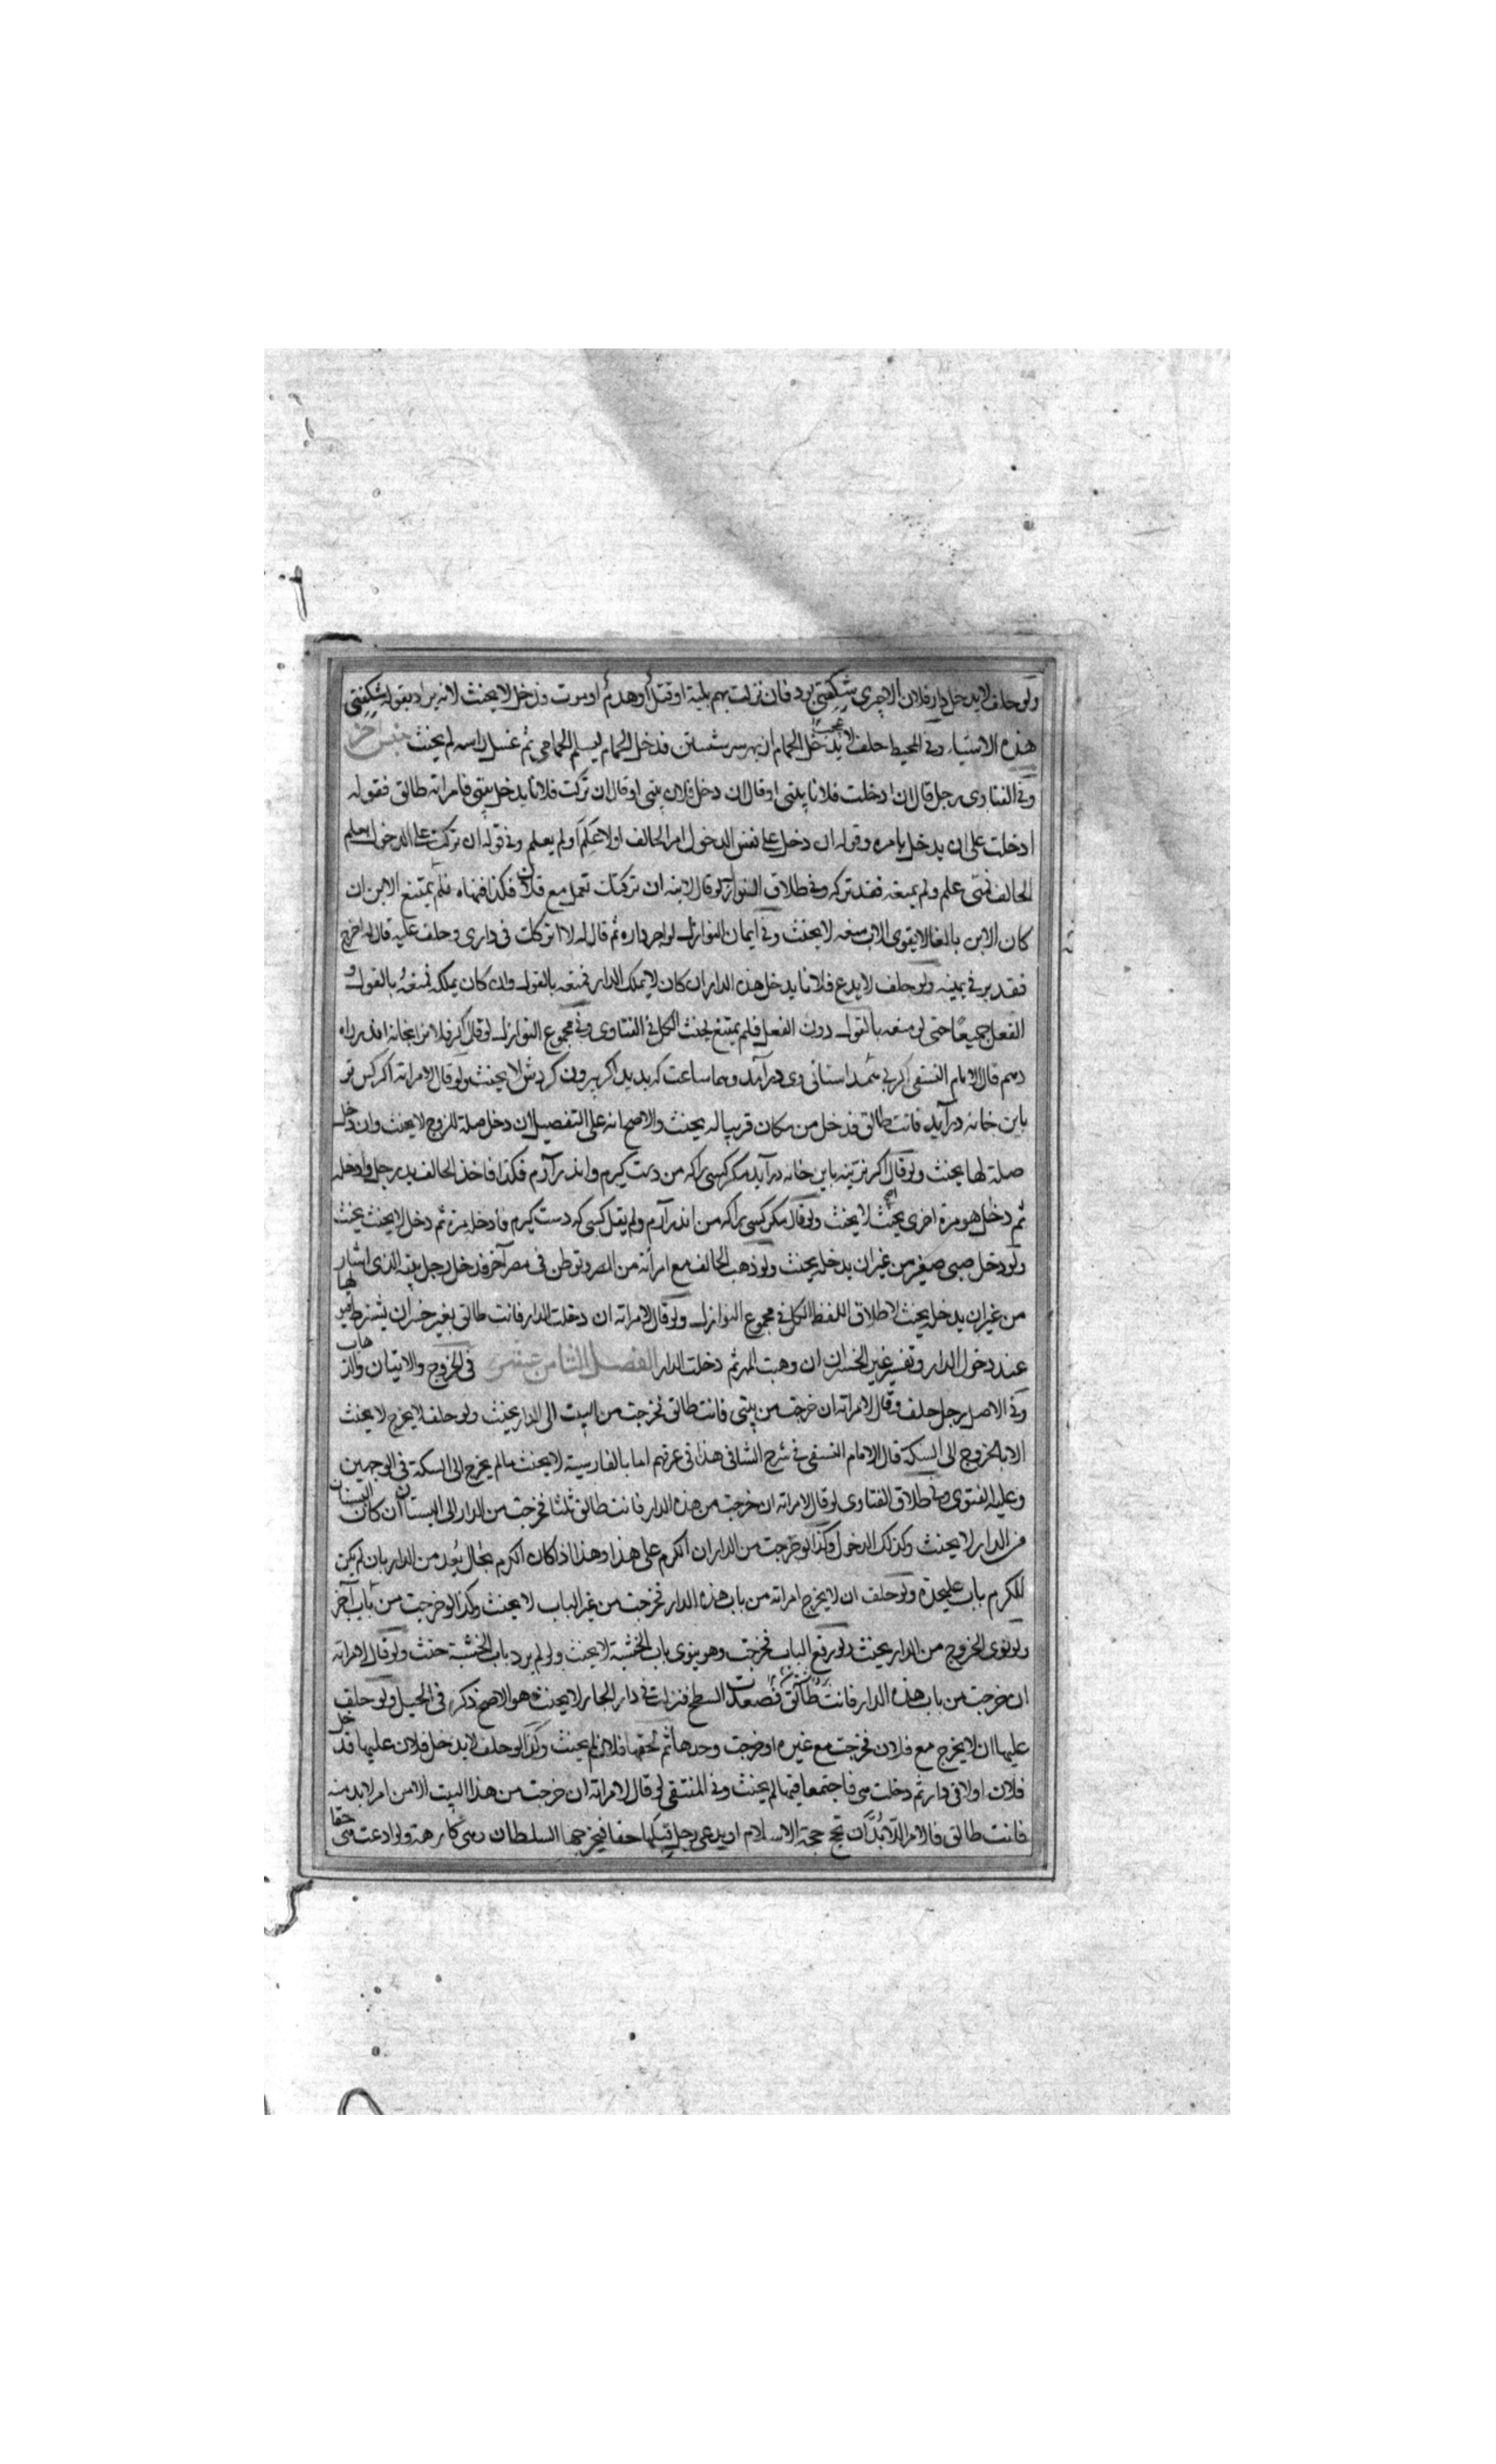 ولو حلف لا يدخل دار فلان الا چيزی شگفتی بود فان نزلت بهم بلية او قتل او هدم او موت فدخل لا يحنث لانه يراد بقوله شگفتی
هذه الاشياء وفي المحيط حلف لا يدخل الحمام از بهر سر شستن فدخل الحمام ليسلم الحمامي ثم غسل راسه لم يحنث جنس آخر
وفي الفتاوى رجل قال ان ادخلت فلانا بيتي او قال ان دخل فلان بيتي او قال ان تركت فلانا يدخل بيتي فامراته طالق فقوله
ادخلت على ان يدخل بامره وقوله ان دخل على نفس الدخول امر الحالف او لا علم او لم يعلم وفي قوله ان تركت على الدخول بعلم
الحالف فمتى علم ولم يمنعه فقد تركه وفي طلاق النوازل لو قال لابنه ان تركتك تعمل مع فلان فكذا فنهاه فلم يمتنع الابن ان
كان الابن بالغا لا يقوى الاب منعه لا يحنث وفي ايمان النوازل لو اجر داره ثم قال له لا اتركك في داري وحلف عليه قال له اخرج
فقد بر في يمينه ولو حلف لا يدع فلانا يدخل هذه الدار ان كان لا يملك الدار فمنعه بالقول وان كان يملكه فمنعه بالقول و
الفعل جميعا حتى لو منعه بالقول دون الفعل فلم يمتنع يحنث الكل في الفتاوى وفي مجموع النوازل لو قال اگر فلانرا بخانه اندر راه
دهم قال الامام النسفي اگر بی همداستانی وی درآمد وهما ساعت كه بديد اگر بيرون كردش لا يحنث ولو قال لامراته اگر كس تو
باين خانه درآيد فانت طالق فدخل من مكان قريبا له يحنث والاصح انه على التفصيل ان دخل صلة للزوج لا يحنث وان دخل
صلة لها يحنث ولو قال اگر نرينه باين خانه درآيد مگر كسی را كه من دست گيرم واندر آرم فكذا فاخذ الحالف بيد رجل وادخله
ثم دخل هو مرة اخرى يحنث لا يحنث ولو قال مگر كسی را كه من اندر آرم ولم يقل كسی كه دست گيرم فادخله مرة ثم دخل لا يحنث يحنث
ولو دخل صبي صغير من غير ان يدخله يحنث ولو ذهب الحالف مع امراته من المصر وتوطن في مصر آخر فدخل رجل بيته الذي اشار
من غير ان يدخل يحنث لاطلاق اللفظ الكل في مجموع النوازل ولو قال لامراته ان دخلت الدار فانت طالق بغير خسران يشترط
عند دخول الدار وتفسير غير الخسران ان وهبت المهر ثم دخلت الدار الفصل الثامن عشر في الخروج والاتيان والذهاب
وفي الاصل رجل حلف وقال لامراته ان خرجت من بيتي فانت طالق فخرجت من البيت الى الدار يحنث ولو حلف لا يخرج لا يحنث
الا بالخروج الى السكة قال الامام النسفي في شرح الشافي هذا في عرفهم اما بالفارسية لا يحنث ما لم يخرج الى السكة في الوجهين
وعليه الفتوى وفي طلاق الفتاوى لو قال لامراته ان خرجت من هذه الدار فانت طالق ثلثا فخرجت من الدار الى البستان ان كان البستان
من الدار لا يحنث وكذلك الدخول وكذا لو خرجت من الدار ان الكرم على هذا وهذا اذا كان الكرم بحال يعد من الدار بان لم يكن
للكرم باب عليحدة ولو حلف ان لا يخرج امراته من باب هذه الدار فخرجت من غير الباب لا يحنث وكذا لو خرجت من باب آخر
ولو نوى الخروج من الدار يحنث ولو رفع الباب فخرجت وهو ينوى باب الخشبة لا يحنث ولو لم يرد باب الخشبة حنث ولو قال لامراته
ان خرجت من باب هذه الدار فانت طالق فصعدت السطح فنزلت في دار الجار لا يحنث هو الاصح ذكره في الحيل ولو حلف
عليها ان لا يخرج مع فلان فخرجت مع غيره او خرجت وحدها ثم لحقها فلان لم يحنث وكذا لو حلف لا يدخل فلان عليها فدخل
فلان اولا في دار ثم دخلت هي فاجتمعا فيها لم يحنث وفي المنتقى لو قال لامراته ان خرجت من هذا البيت الا من امر لا بد منه
فانت طالق فالامر الذي لا بد ان تحج حجة الاسلام او يدعي رجل قبلها حقا فيخرجها السلطان وهي كارهة ولو ادعت هي حقا